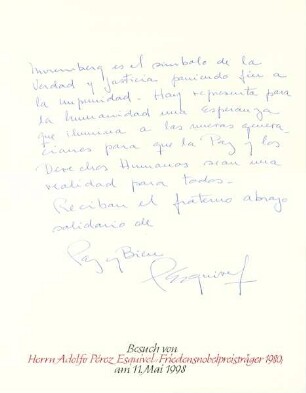 Nuremberg es el simbolo de la
Verdad y Justicia poniendo fin a
la impunidad. Hoy representa para
la humanidad una Esperanza
que ilumina a las nuevas genera
ciones para que la Paz y los
Derechos Humanos sean una
realidad para todos.
Reciban el fraterno abrazo
solidario de
Paz y Bien
Esquivel
Besuch von
Herrn Adolfo Pérez Esquivel, Friedensnobelpreisträger 1980,
am 11. Mai 1998